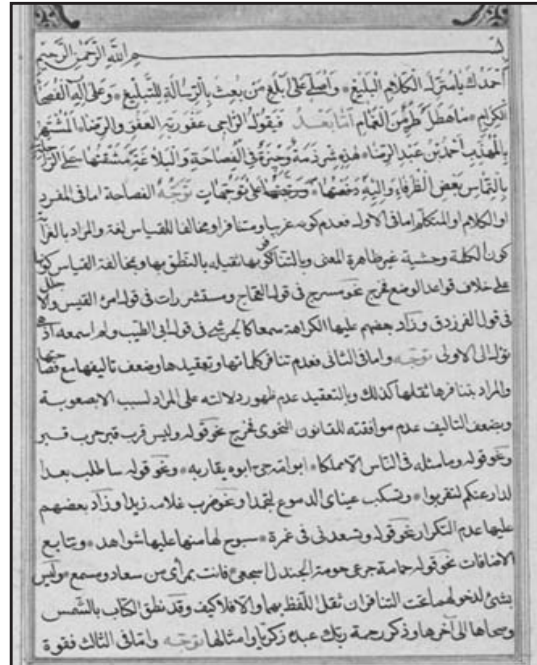 بسم الله الرحمن الرحيم
أحمدك يا منزل الكلام البليغ وأصلي على أبلغ من بعث بالرسالة للتبليغ وعلى آله الفصحاء
الكرام ما هطل طر من الغمام أما بعد فيقول الراجي عفو ربه العفو والرضاء المشتهر
بالمهذب أحمد بن عبد الرضاء هذه شرذمة وجيزة في الفصاحة والبلاغة
بالتماس بعض الظرفاء وإليه دفعتها ورتبتها على توجهات توجه الفصاحة اما في المفرد
او الكلام او المتكلم اما في الاول فعدم كونه غريبا ومتنافرا ومخالفا للقياس لغة والمراد بالغرابة
كون الكلمة وحشية غير ظاهرة المعنى وبالتنافر كونها ثقيلة بالنطق بها وبمخالفة القياس كونها
على خلاف قواعد الوضع فخرج نحو مسرج في قول العجاج ومستشزرات في قول امرء القيس والاجلل
في قول الفرزدق وزاد بعضهم عليها الكراهة سمعا كالجرشي في قول ابي الطيب ولم اسمعه اذ هي
تؤل الى الاولى توجه واما في الثاني فعدم تنافر كلماتها وتعقيدها وضعف تاليفها مع فصاحتها
والمراد بتنافرها ثقلها كذلك وبالتعقيد عدم ظهور دلالته على المراد لسبب الا بصعوبة
وبضعف التاليف عدم موافقته للقانون النحوي فخرج نحو قوله وليس قرب قبر حرب قبر
ونحو قوله وما مثله في الناس الا مملكا ابو امه حي ابوه يقاربه ونحو قوله ساطلب بعد
الدار عنكم لتقربوا وتسكب عيناي الدموع لتجمدا ونحو ضرب غلامه زيدا وزاد بعضهم
عليها عدم التكرار نحو قوله وتسعدني في غمرة سبوح لها منها عليها شواهد وتتابع
الاضافات نحو قوله حمامة جرعى حومة الجندل اسجعي فانت بمرأى من سعاد ومسمع وليس
بشئ لدخولهما تحت التنافر ان ثقل اللفظ بهما والا فلا كيف وقد نطق الكتاب بالشمس
وضحاها الى آخرها وذكر رحمة ربك عبده زكريا وامثالها توجه واما في الثالث فقوة